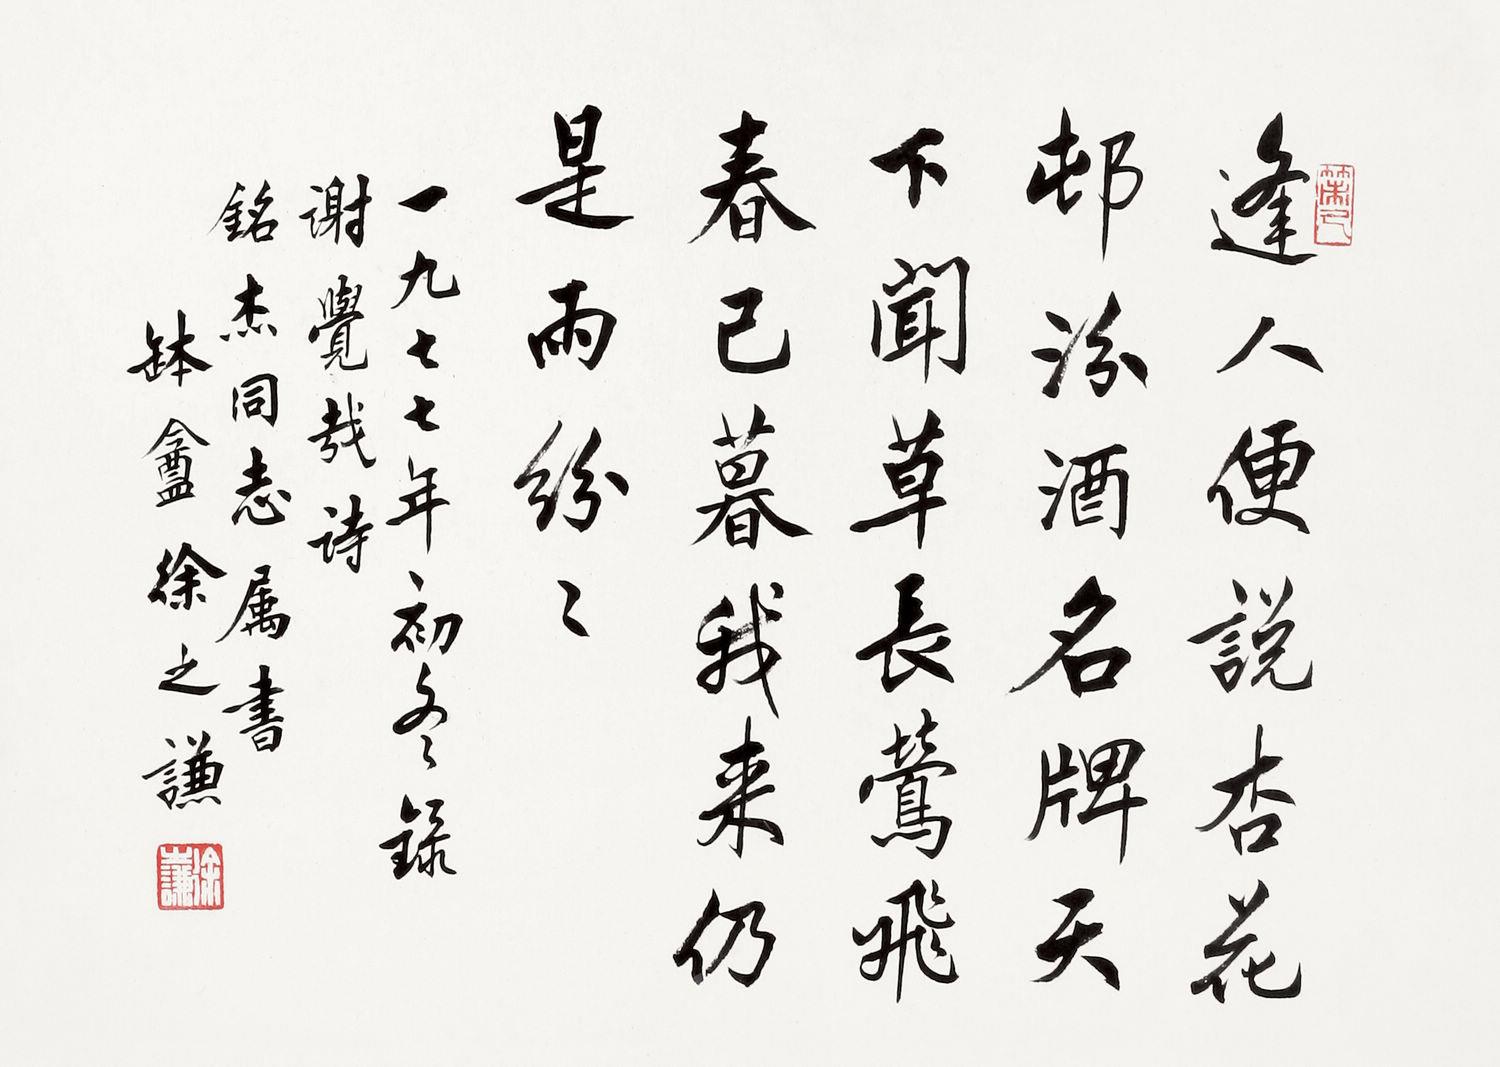 逢人便説杏花
邨汾酒名牌天
下聞草長鶯飛
春已暮我来仍
是雨紛〻
一九七七年初冬録
謝覺哉詩
銘杰同志属書
缽盦徐之謙
徐之謙